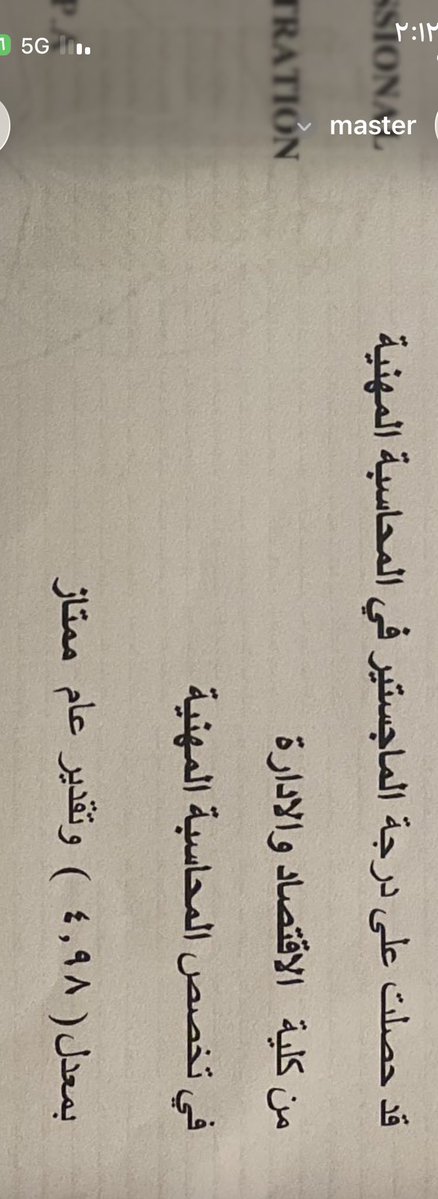 ٢:١٢
5G
master
SSIONAL
قد حصلت على درجة الماجستير في المحاسبة المهنية
TRATION
من كلية الاقتصاد والادارة
في تخصص المحاسبة المهنية
بمعدل ( ٤,٩٨ ) وتقدير عام ممتاز